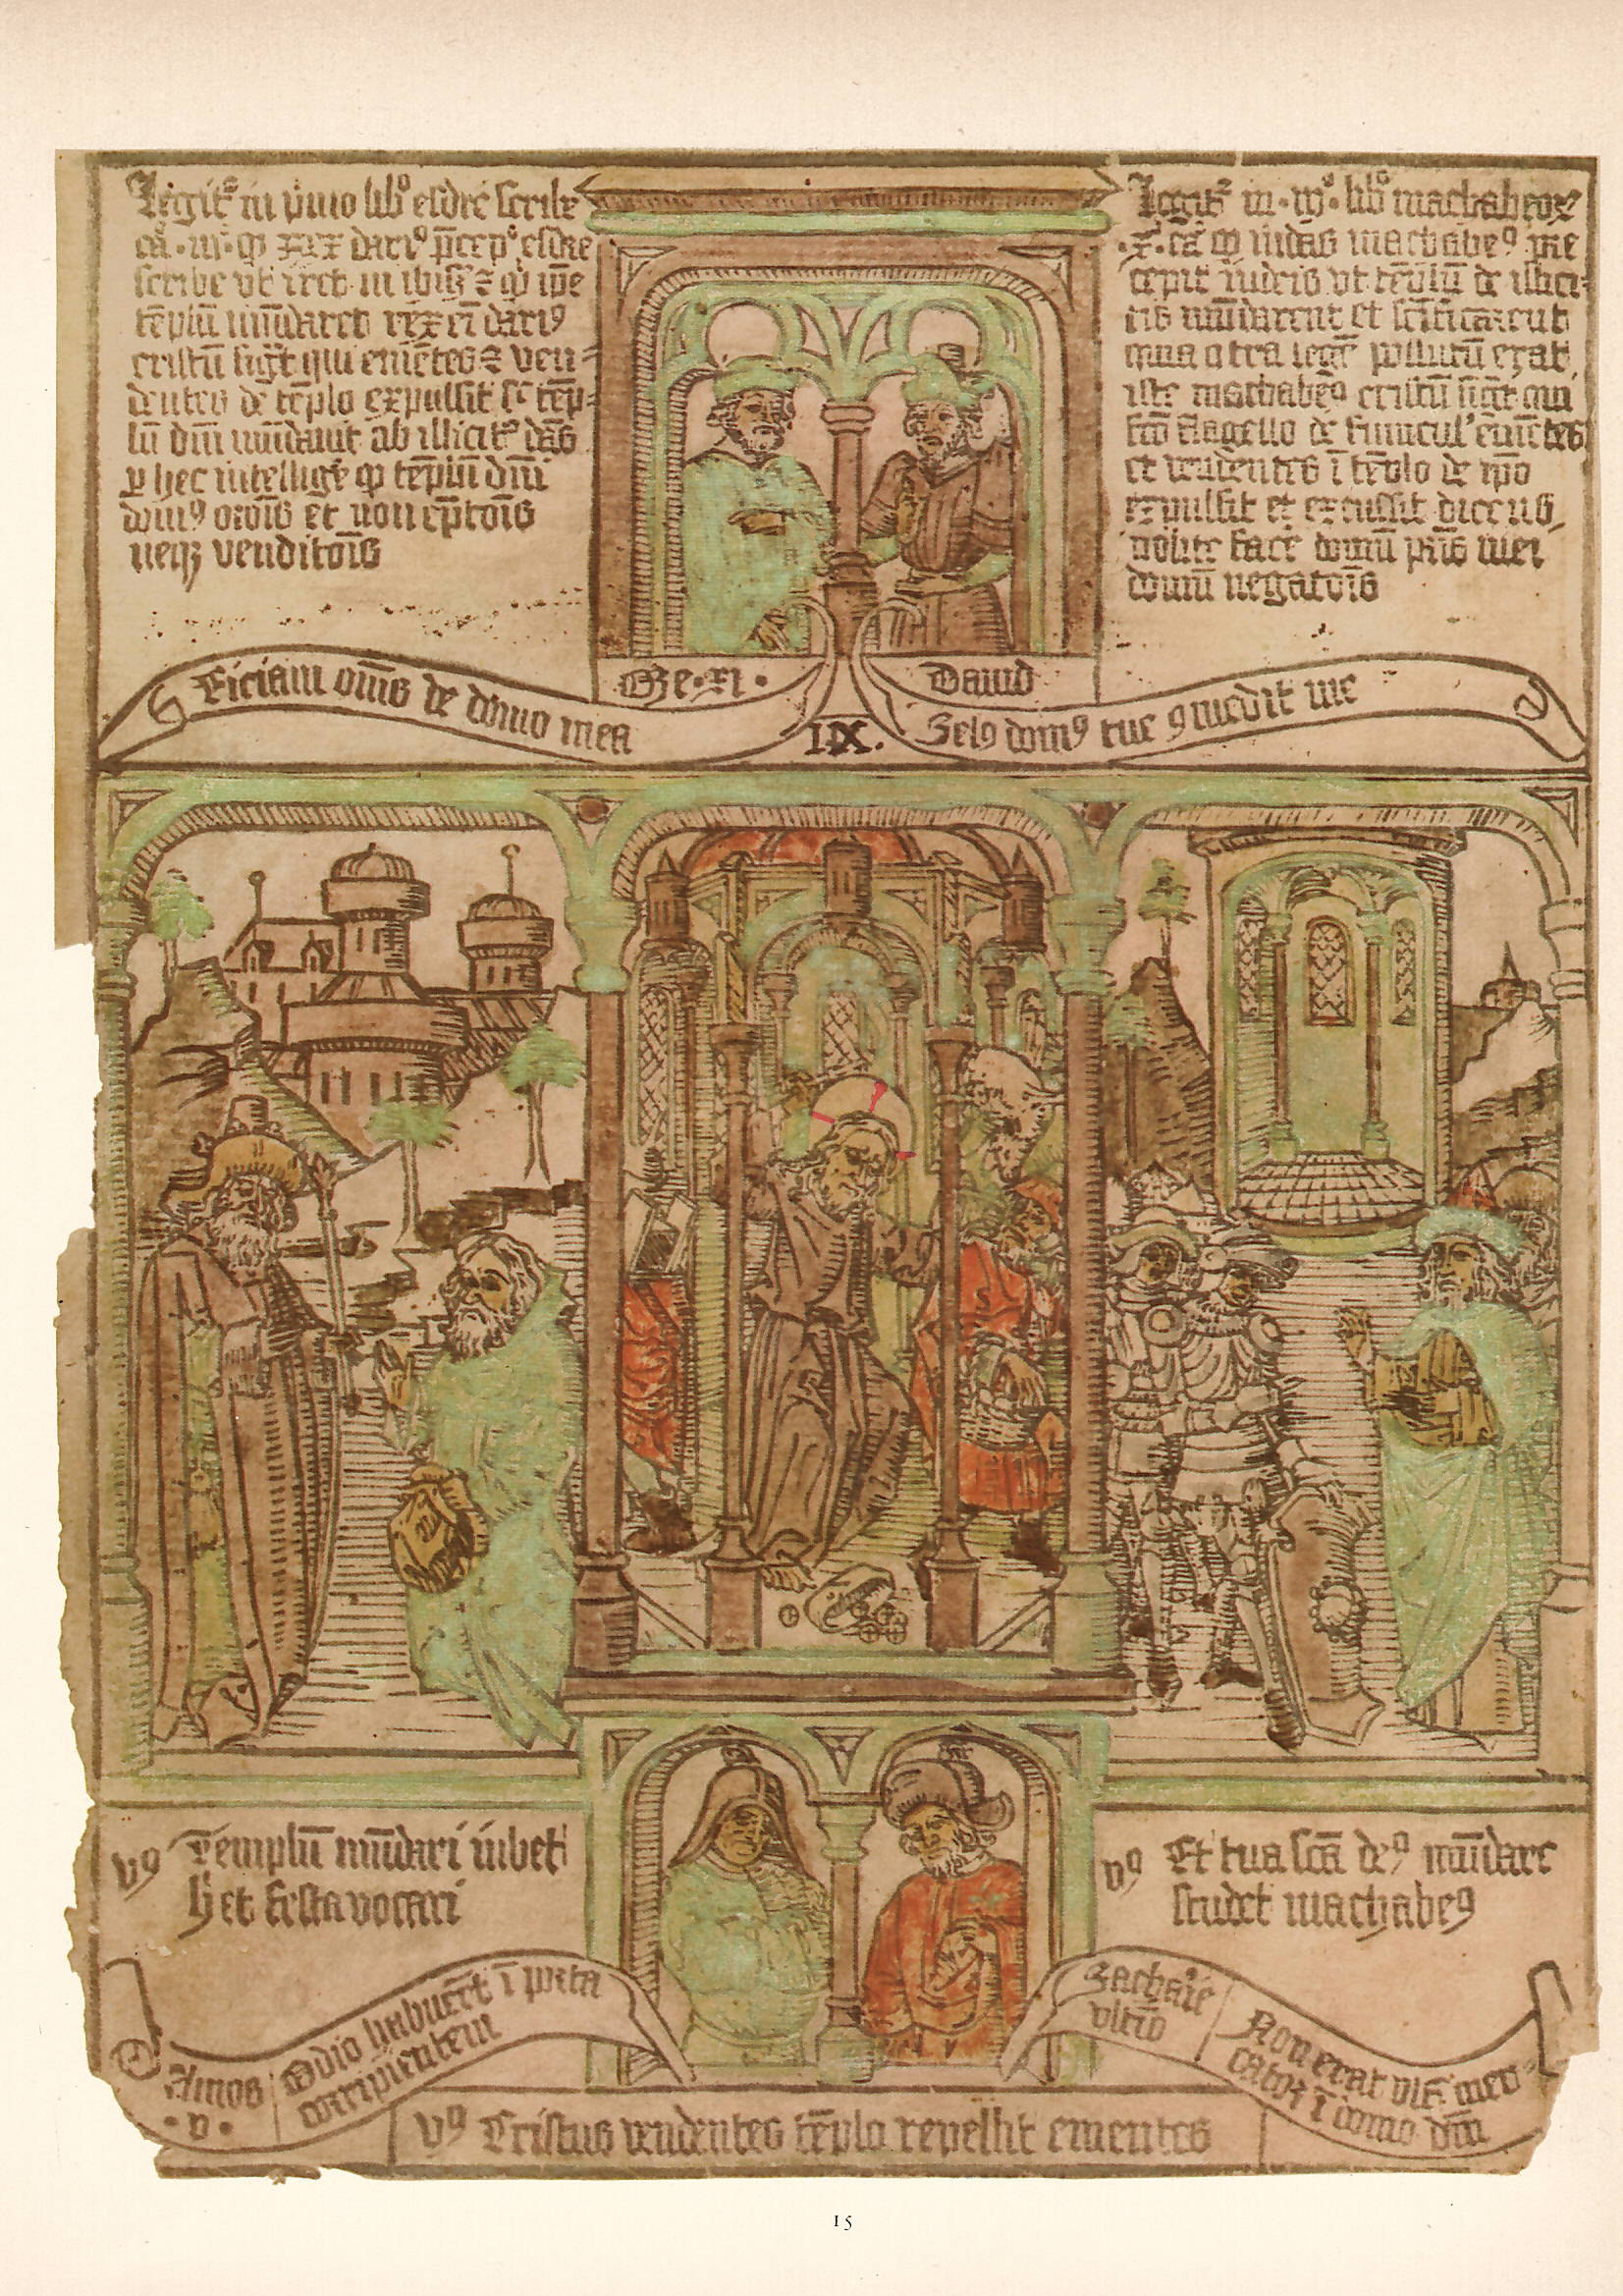 Legit᷑ in p̄mo lib̊ esdre scribe
ca̅ · ꝙ xıx dariꝰ p̄cepꝰ esdre
scribe vt iret in ꝛ ꝙ ip̄e
te̅plu̅ mu̅daret rex ei̅ dariꝰ
cristu̅ sig̅t qui eme̅tes ꝛ ven⸗
dentes de te̅plo expulsit te̅p⸗
lu̅ dn̅i mu̅dauit ab illicit᷑ da̅s
ꝑ hec intellige̅ ꝙ te̅plu̅ dn̅i
domꝰ oro̅is et non e̅pto̅is
neqꝫ vendito̅is
Legit᷑ in · lib̊ machabeoꝝ
·x· ca̅ ꝙ iudas machabeꝰ pre
cepit iudeis vt te̅plu̅ de illici⸗
tis mu̅darent et sc̅ificarent
quia ꝯtra lege̅ pollutu̅ erat
iste machabeꝰ cristu̅ sig̅t qui
fc̅o flagello de funicul' eme̅tes
et vendentes i̅ te̅plo de ip̅o
expulsit et excussit dicens
nolite face̅ domu̅ pr̅is mei
domu̅ negato̅is
Eiciam om̅s de domo mea
Oze·xi·
Dauid
Zelꝰ domꝰ tue ꝯmedit me
IX.
vꝰ Templu̅ mu̅dari iubet
het festa vocari
vꝰ Et tua sc̅a deꝰ mu̅dare
studet machabeꝰ
Amos
·v·
Odio habuer̅t i̅ porta
corripientem
Zacharie
vltio̅
Non erat vlt̅ mer⸗
cator i̅ domo dn̅i
vꝰ Cristus vendentes te̅plo repellit ementes
15